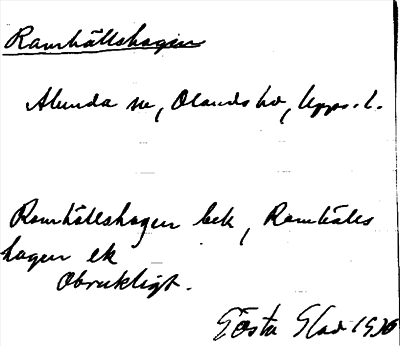 Ramhällshagen
Alunda sn, Olands hd, Upps. l.
Ramhällshagen bek, Ramhälls
hagen ek
Obrukligt.
Gösta